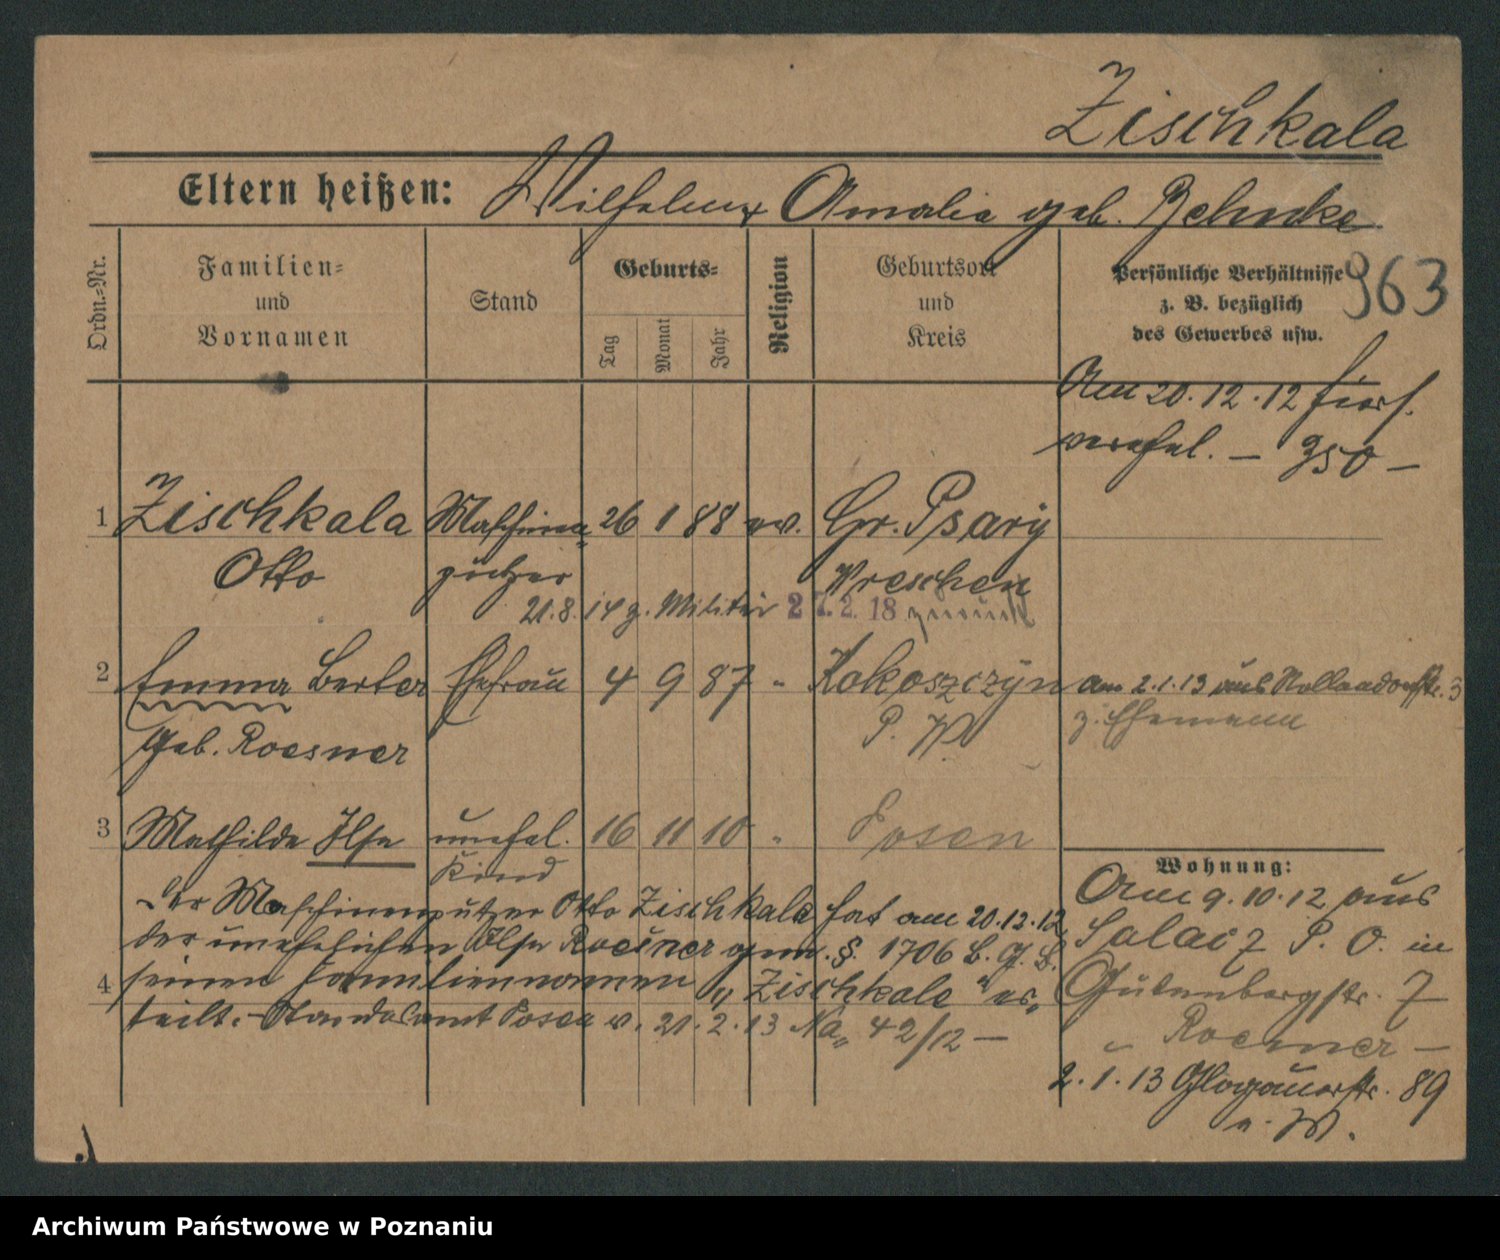 Zischkala
Eltern heißen: Wilhelm u. Amalia geb. Behnke
963
Ordn.=Nr.
Familien=
und
Vornamen
Stand
Geburts=
Tag
Monat
Jahr
Religion
Geburtsort
und
Kreis
Persönliche Verhältnisse
z. B. bezüglich
des Gewerbes usw.
Am 20.12.12 hier
verehel. —
1 Zischkala Maschinen= 26 1 88 ev. Gr. Psary
Otto putzer Wreschen
21.8.14 z. Militär 2 .2.18 zurück
2 Emma Berta Ehefrau 4 9 87 " Kokoszczyn am 2.1.13 aus Nollendorfstr. 3
Geb. Roesner P. W. z. Ehemann
3 Mathilde Ilse unehel. 16 11 10 " Posen
Kind
Der Maschinenputzer Otto Zischkala hat am 20.12.12
der unehelichen Ilse Roesner gem. §. 1706 B. G. B.
4 seinen Familiennamen „Zischkala" er=
teilt. — Standesamt Posen v. 21.2.13 42/12 —
Wohnung:
Am 9.10.12 aus
Solacz P. O. in
Gutenbergstr. 7
Roesner —
2.1.13 Glogauerstr. 89
Archiwum Państwowe w Poznaniu